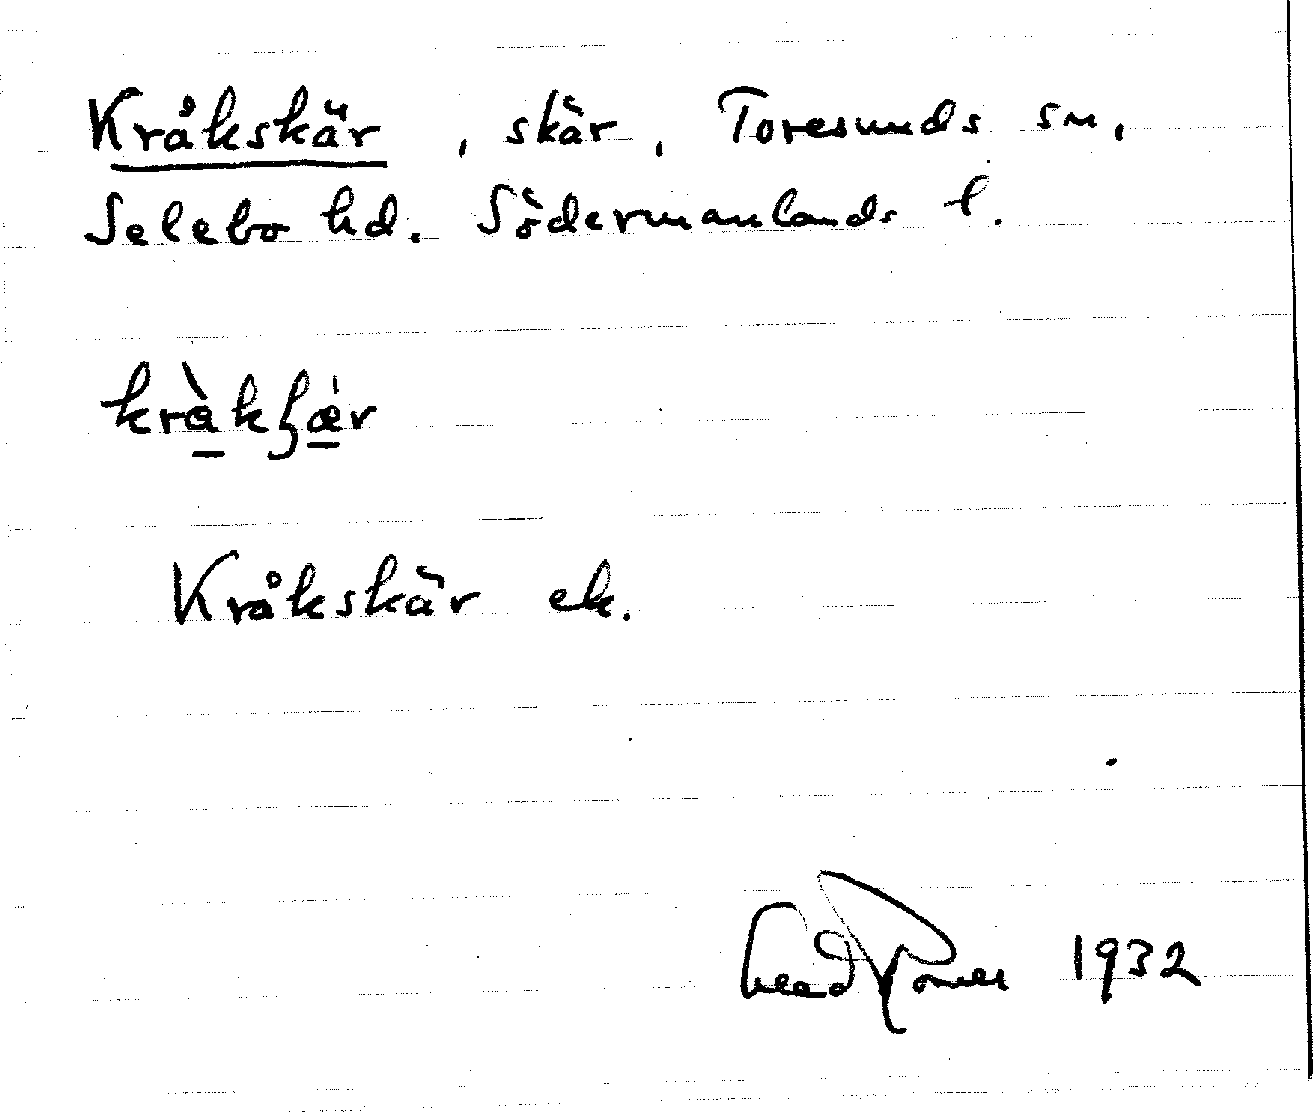 Kråkskär, skär, Toresunds sn,
Selebo hd. Södermanlands l.
kràkʂǽr
Kråkskär ek.
1932